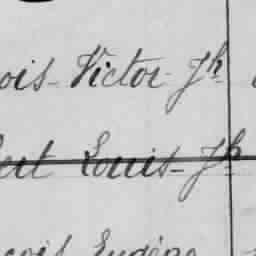 ois-Victor-Jh
ert Louis-Jh
çois Eugène